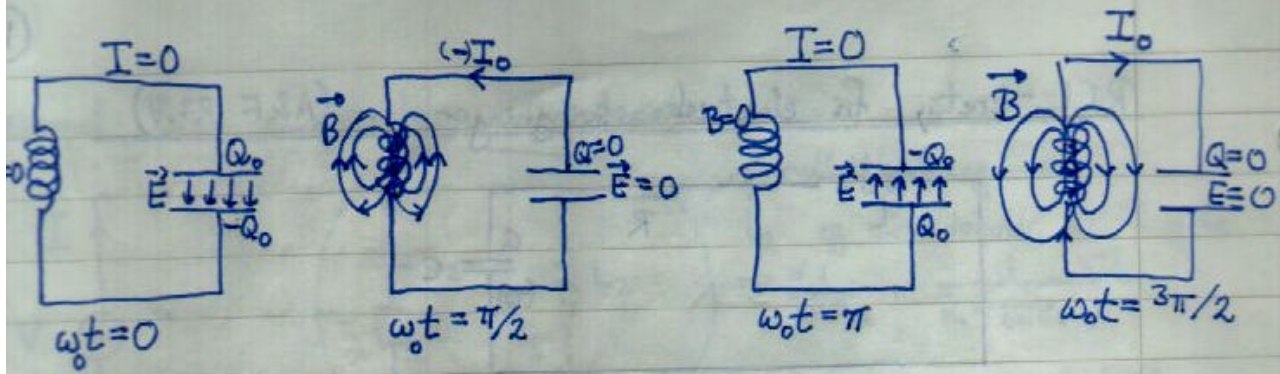 I=0
=0
Q₀
E⃗
-Q₀
ω₀t=0
(-)I₀
B⃗
Q=0
E⃗=0
ω₀t=π/2
I=0
B=0
-Q₀
E⃗
Q₀
ω₀t=π
I₀
B⃗
Q=0
E=0
ω₀t=3π/2